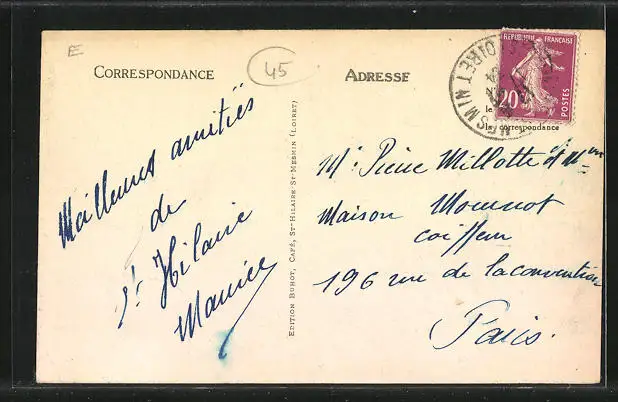 Æ
CORRESPONDANCE
45
Meilleures amitiés
de
St Hilaire
Maurice
EDITION BUHOT, CAFÉ, ST-HILAIRE ST-MESMIN (LOIRET)
ADRESSE
REPUBLIQUE FRANÇAISE
20c
POSTES
LOIRET
la correspondance
Mr Pierre Millotte et Mme
Maison Mournot
coiffeur
196 rue de la convention
Paris.